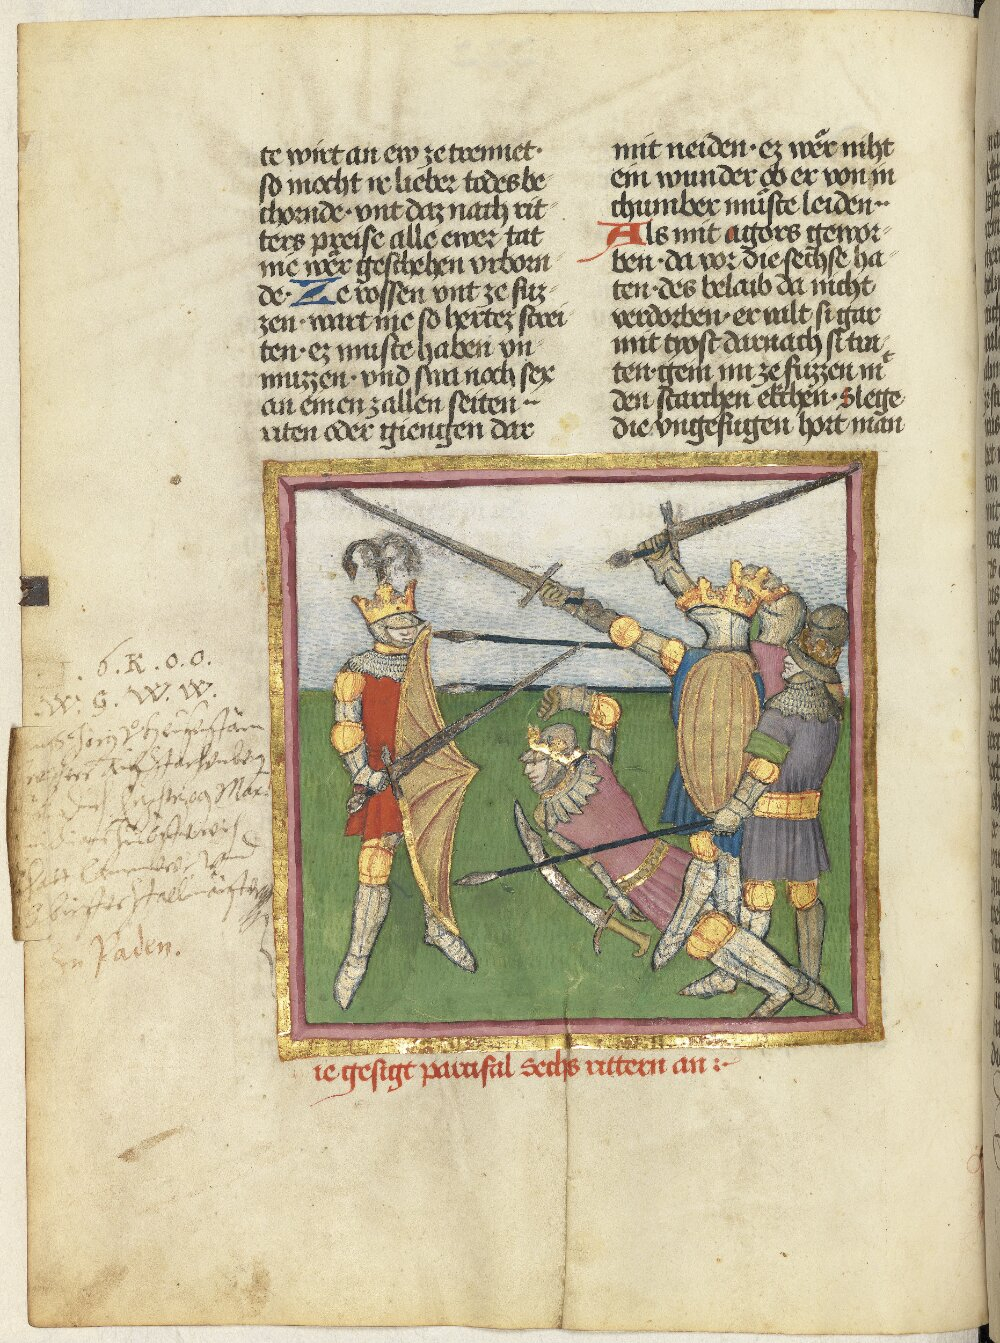 te wirt an ew ze trennet·
so mocht ir lieber todes be-
chornde· vnt daz nach rit-
ters preise alle ewer tat
nie wer geschehen vrborn-
de· Ze rossen vnt ze fuz-
zen· wart nie so hertez strei-
ten· ez muste haben vn-
muzzen· vnd swa noch sex
an einen zallen seiten··
riten oder giengen dar
mit neiden· ez wer niht
ein wunder ob er von in
chumber müste leiden··
Als mit agors gewor-
ben· da vor die sechse ha-
ten· des belaib da nicht
verdorben· er valt si gar
mit tyost darnach si tra-
ten· gein im ze fuzzen mit
den starchen ekchen· Slege
die vngefugen hort man
ie gesigt parcifal Sechs rittern an :-
6. K. o. o.
W. G. W. W.
in Paden.